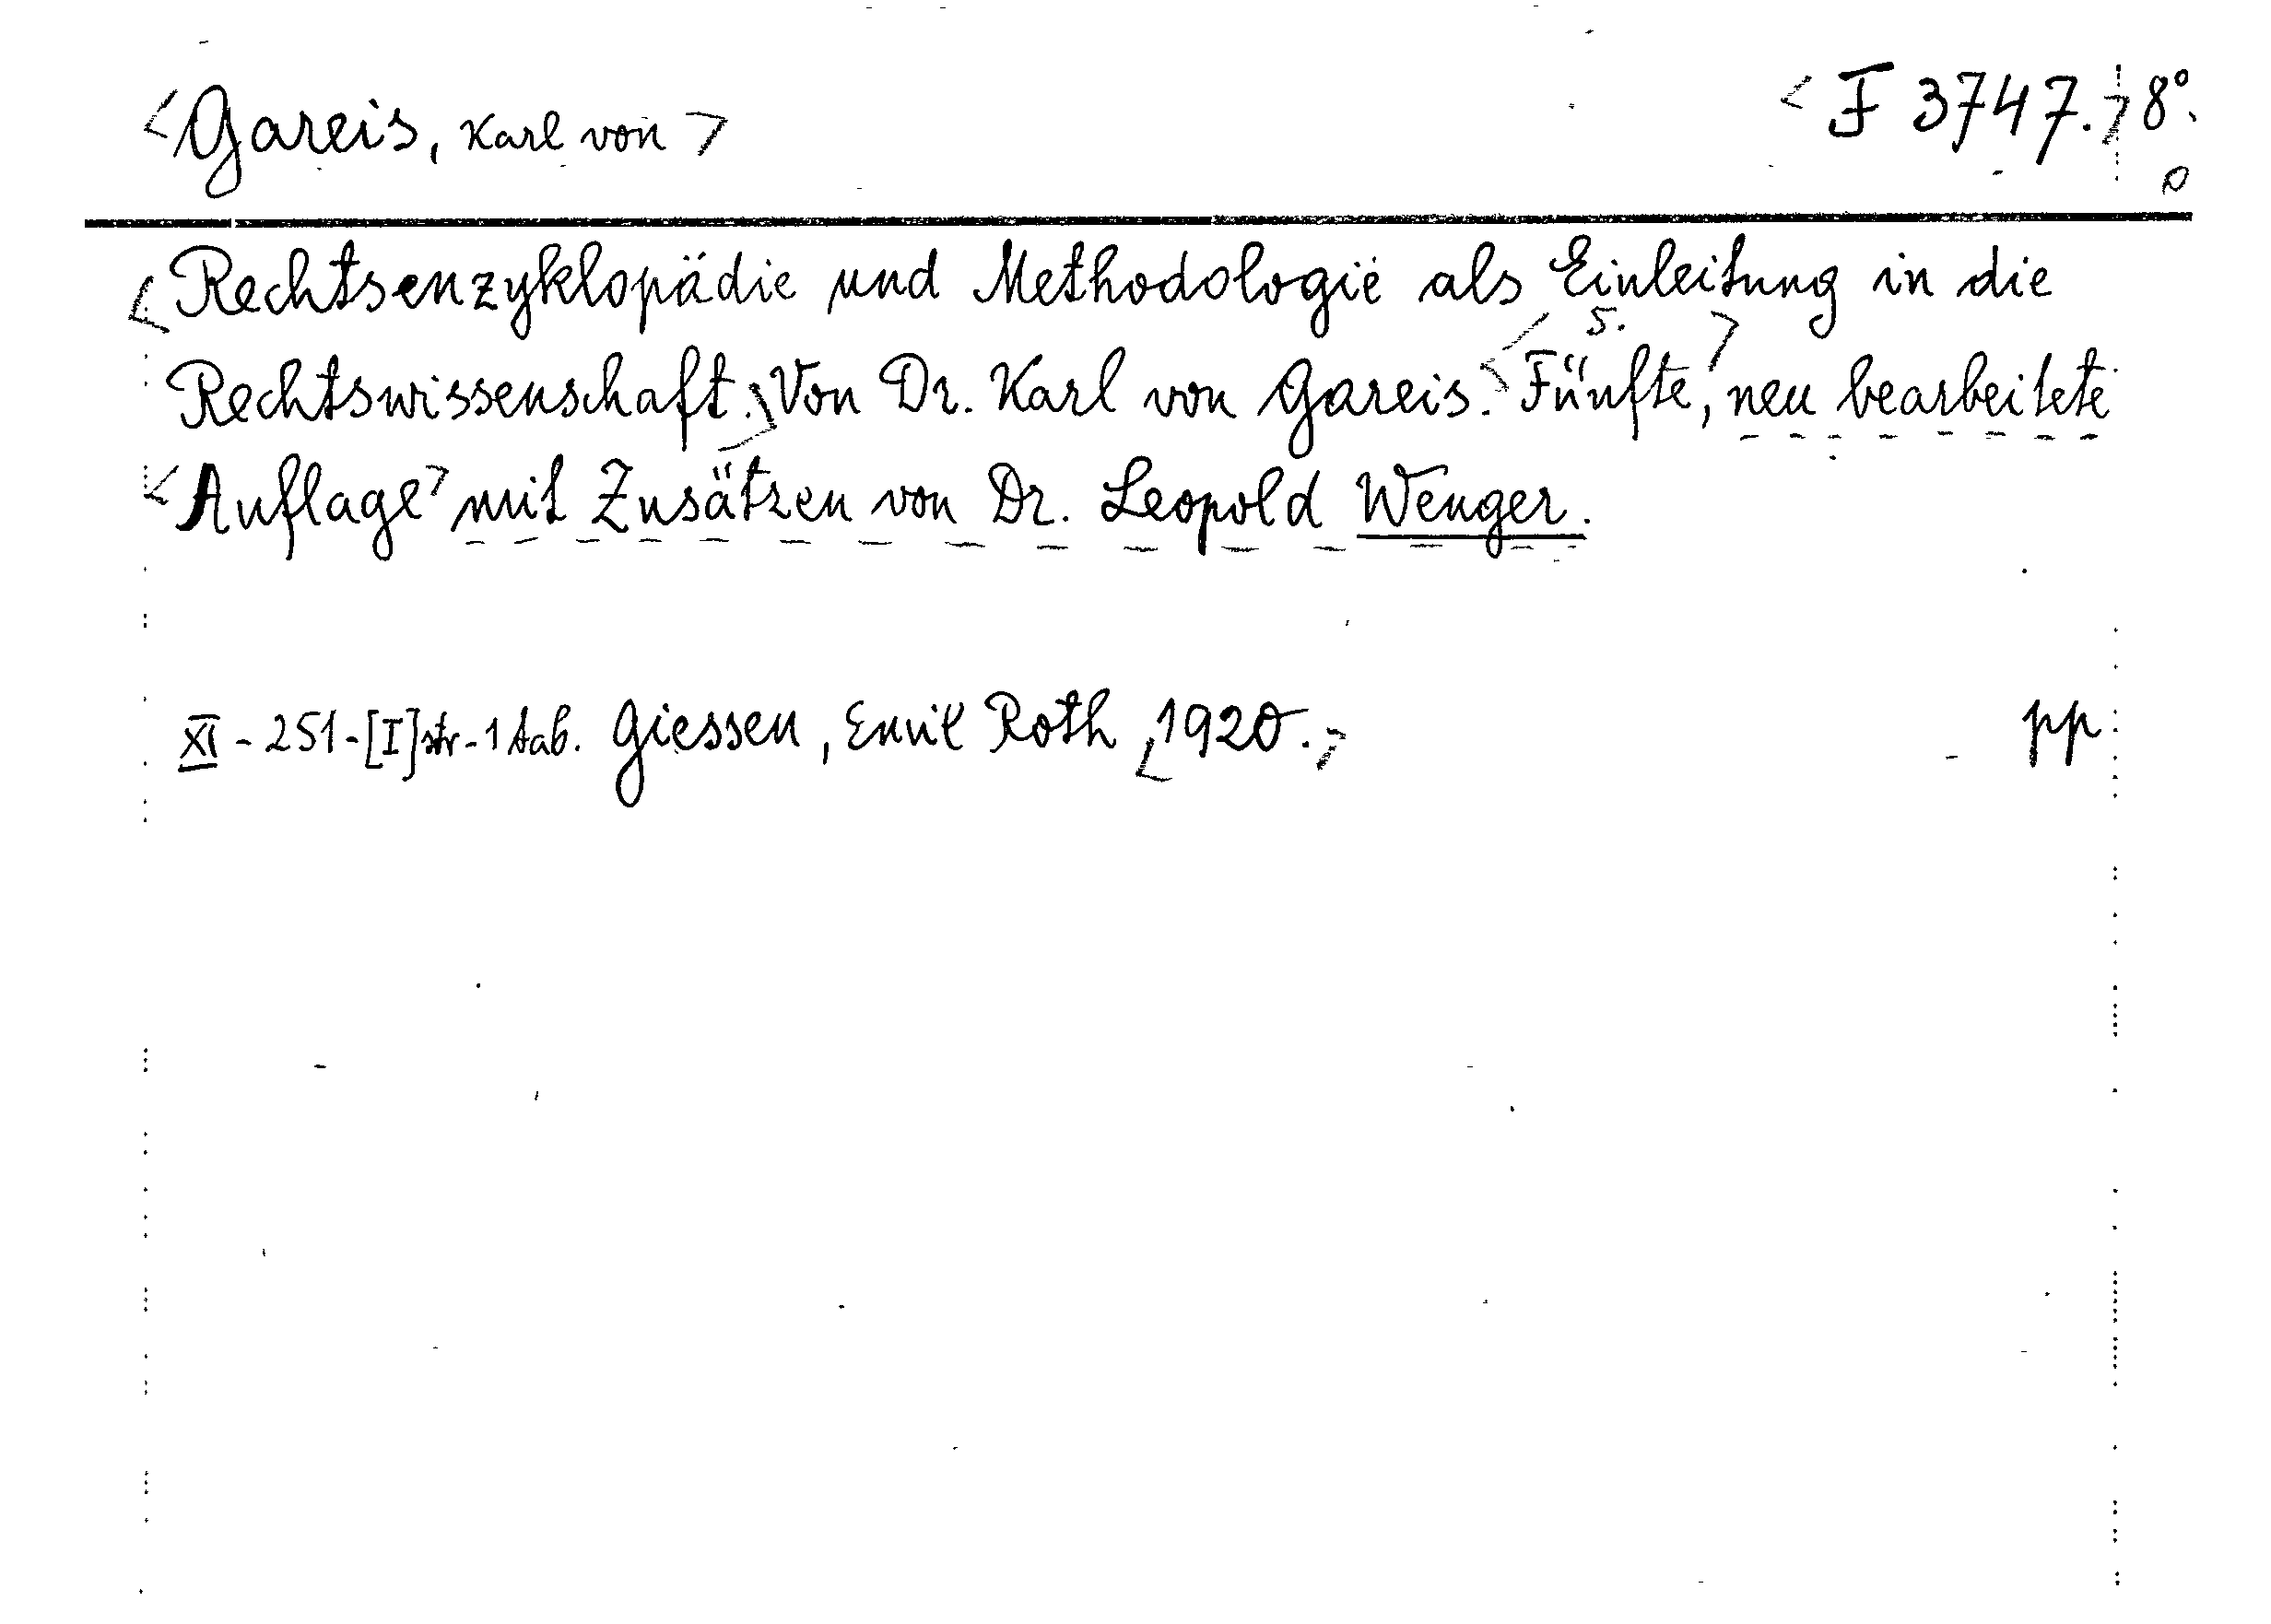 <Gareis, Karl von> <F 3747.> 8°.
<Rechtsenzyklopädie und Methodologie als Einleitung in die
5.
Rechtswissenschaft.> Von Dr. Karl von Gareis. <Fünfte,> neu bearbeitete
<Auflage> mit Zusätzen von Dr. Leopold Wenger.
XI - 251 - [I] str - 1 tab. Giessen, Emil Roth <1920.> pp